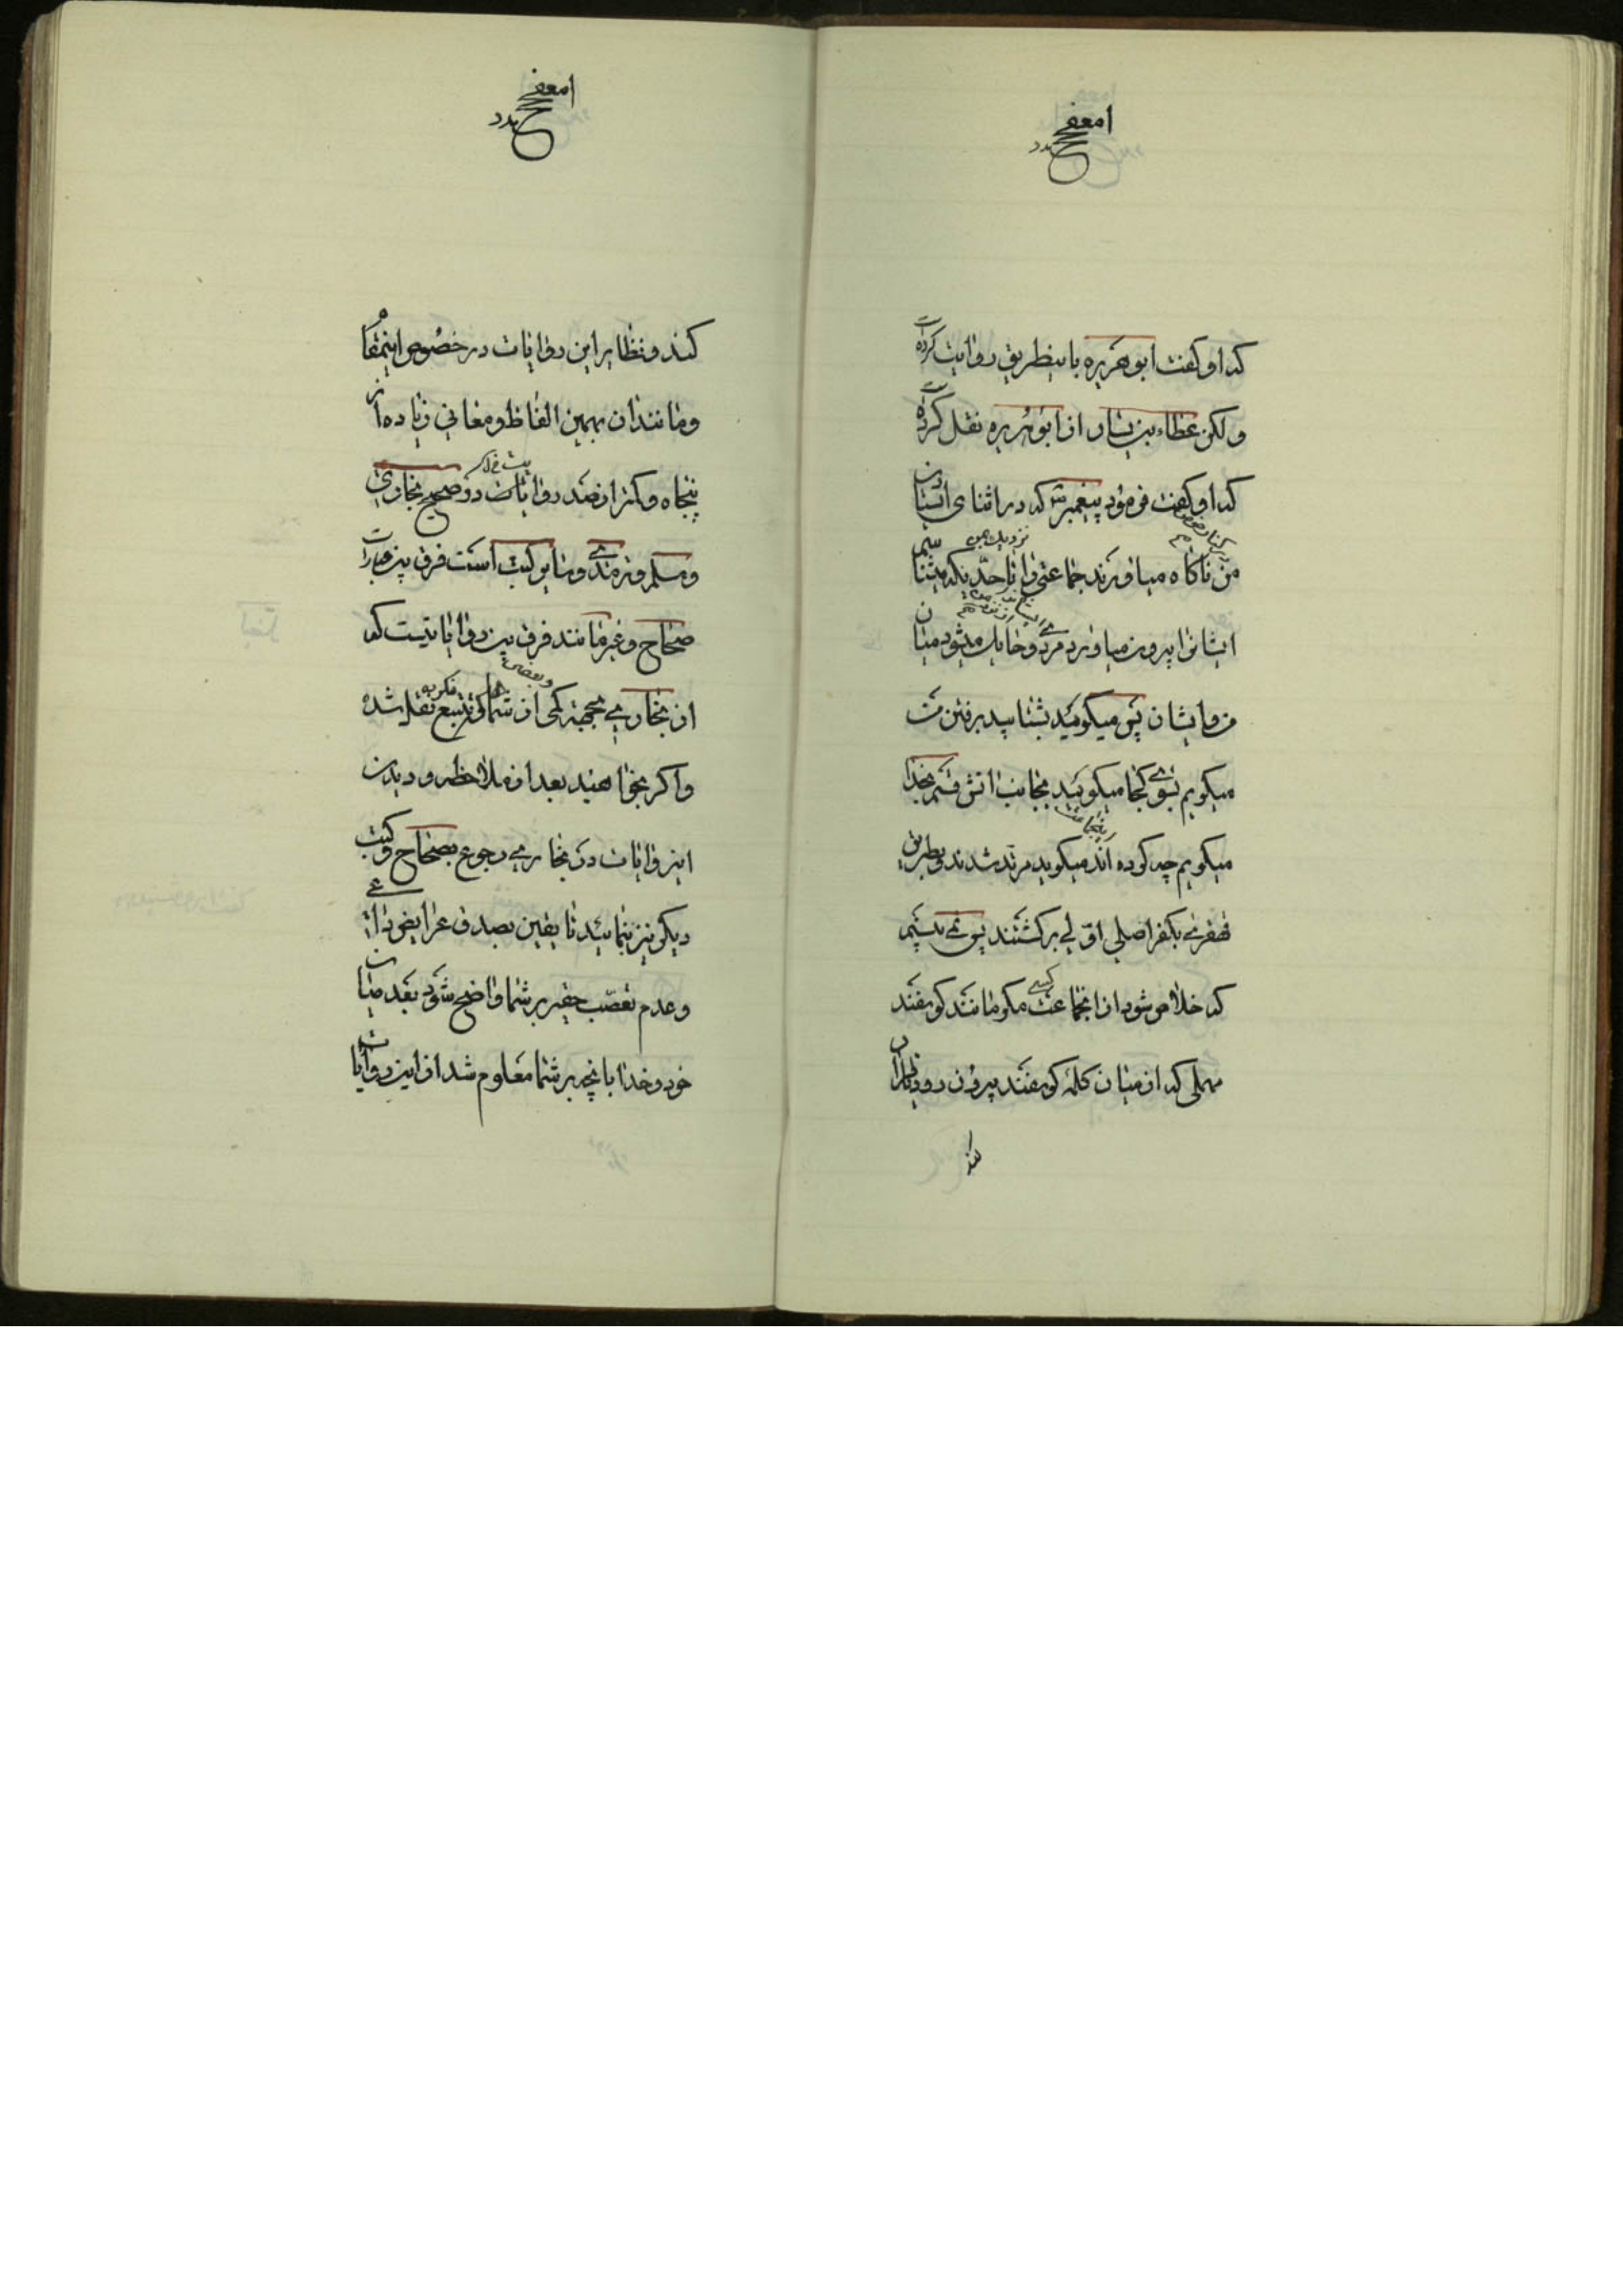 که او گفت ابوهریره باینطریق روایت کرده است
ولکن عطاء بن یسار از ابوهریره نقل کرده است
که او گفت فرمود پیغمبر ص که در اثنای ایستادن
من ناکاه میاورند جماعتی را تا حدیکه میشناسیم
ایشانرا بیرون میاورد مردی و حایل میشود میان
من و ایشان پس میکوید بشتابید برفتن مت
میکویم بسوی کجا میکوید بجانب اتش قسم بخدا
میکویم چه کرده اند میکوید مرتد شدند و بطریق
قهقری بکفر اصلی اوّلی برکشتند پس نمی بینم
که خلاص شود از انجماعت کسی مکر مانند کوسفند
مهملی که از میان کله کوسفند بیرون رود یا انرا
کند و نظایر این روایات در خصوص اینمقام
و مانند ان بهمین الفاظ و معانی زیاده از
پنجاه و کمتر از صد روایات در صحیح بخاری
و مسلم و ترمذی و سایر کتب است فرق بین عبارات
صحاح و غیرها مانند فرق بین روایاتیست که
از بخاری بجهة کمی از شما نقل شده
و اکر بخواهید بعد از ملاحظه و دیدن
این روایات در بخاری رجوع بصحاح و کتب
دیکر نیز بنمائید تا یقین بصدق عرایض داعی
و عدم تعصّب حقیر بر شما واضح شود بعد میان
خود و خدا بانچه بر شما معلوم شد از این روایات